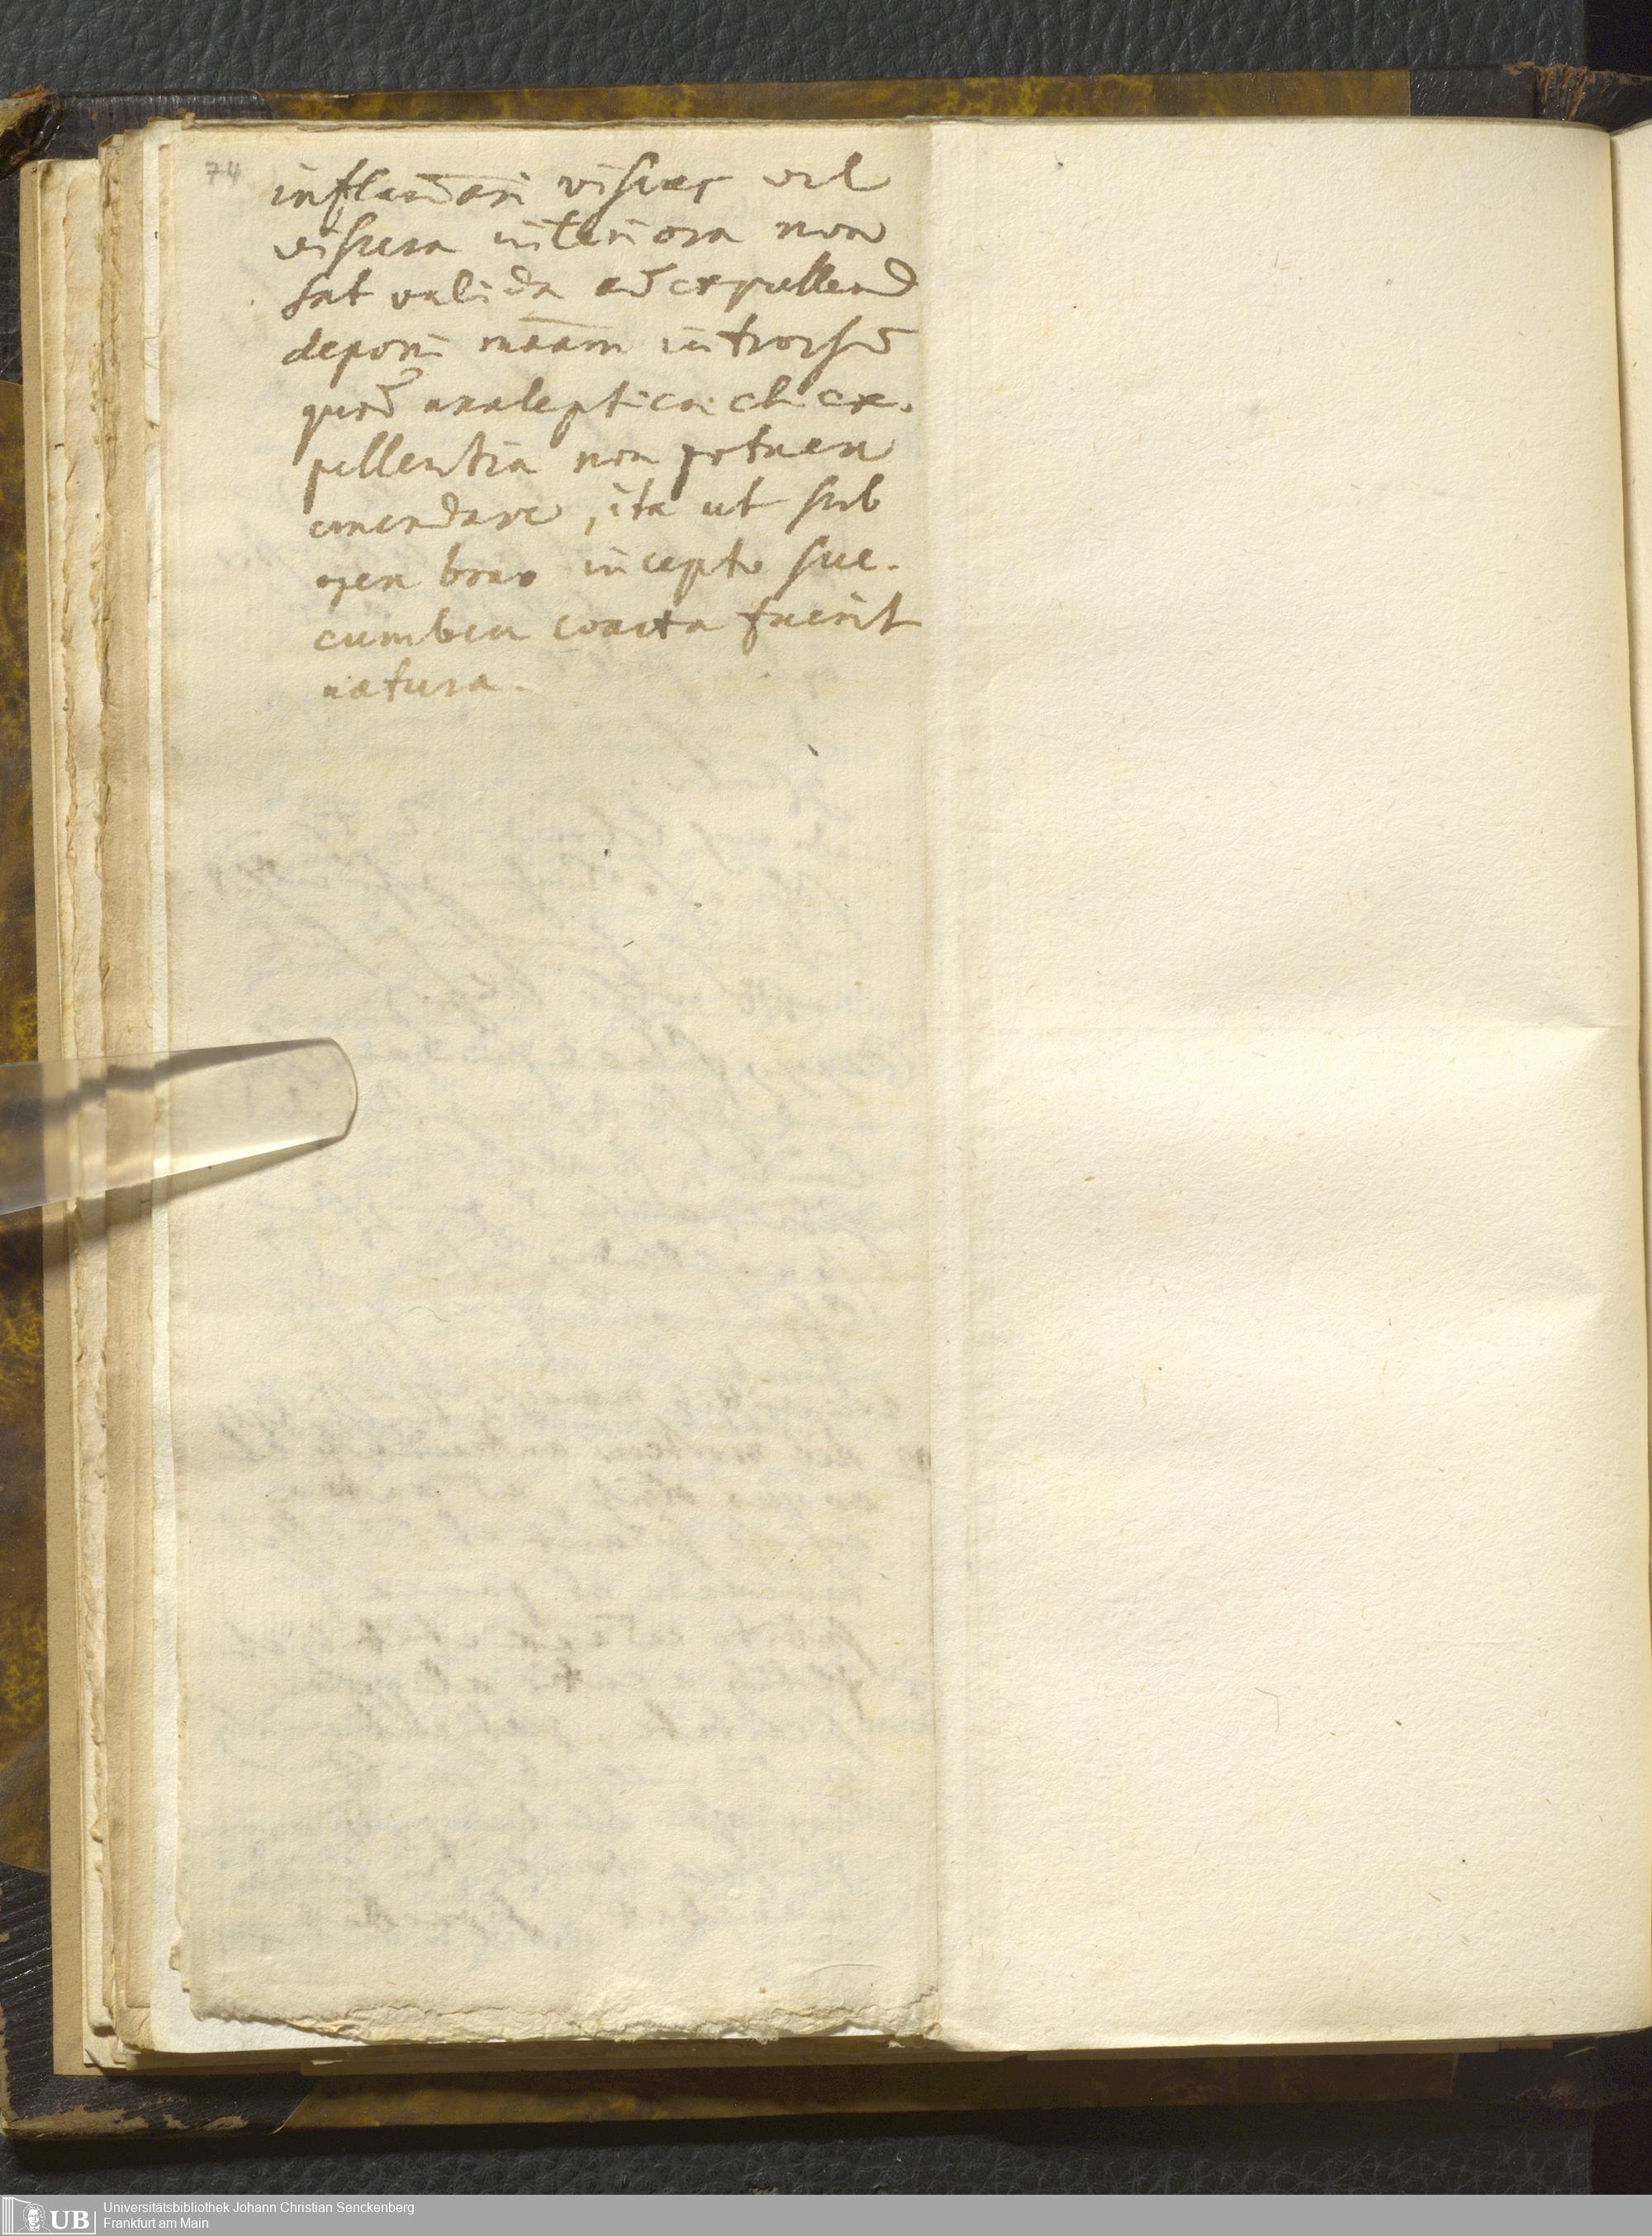 74
inflam̄ari viscus vel
viscera interiora non
sat valida ad expellend
deponi maam introrsū
quod analeptica et ex-
pellentia non potuere
emendare, ita ut sub
opere bono incepto suc-
cumbere coacta fuerit
natura.
UB
Universitätsbibliothek Johann Christian Senckenberg
Frankfurt am Main